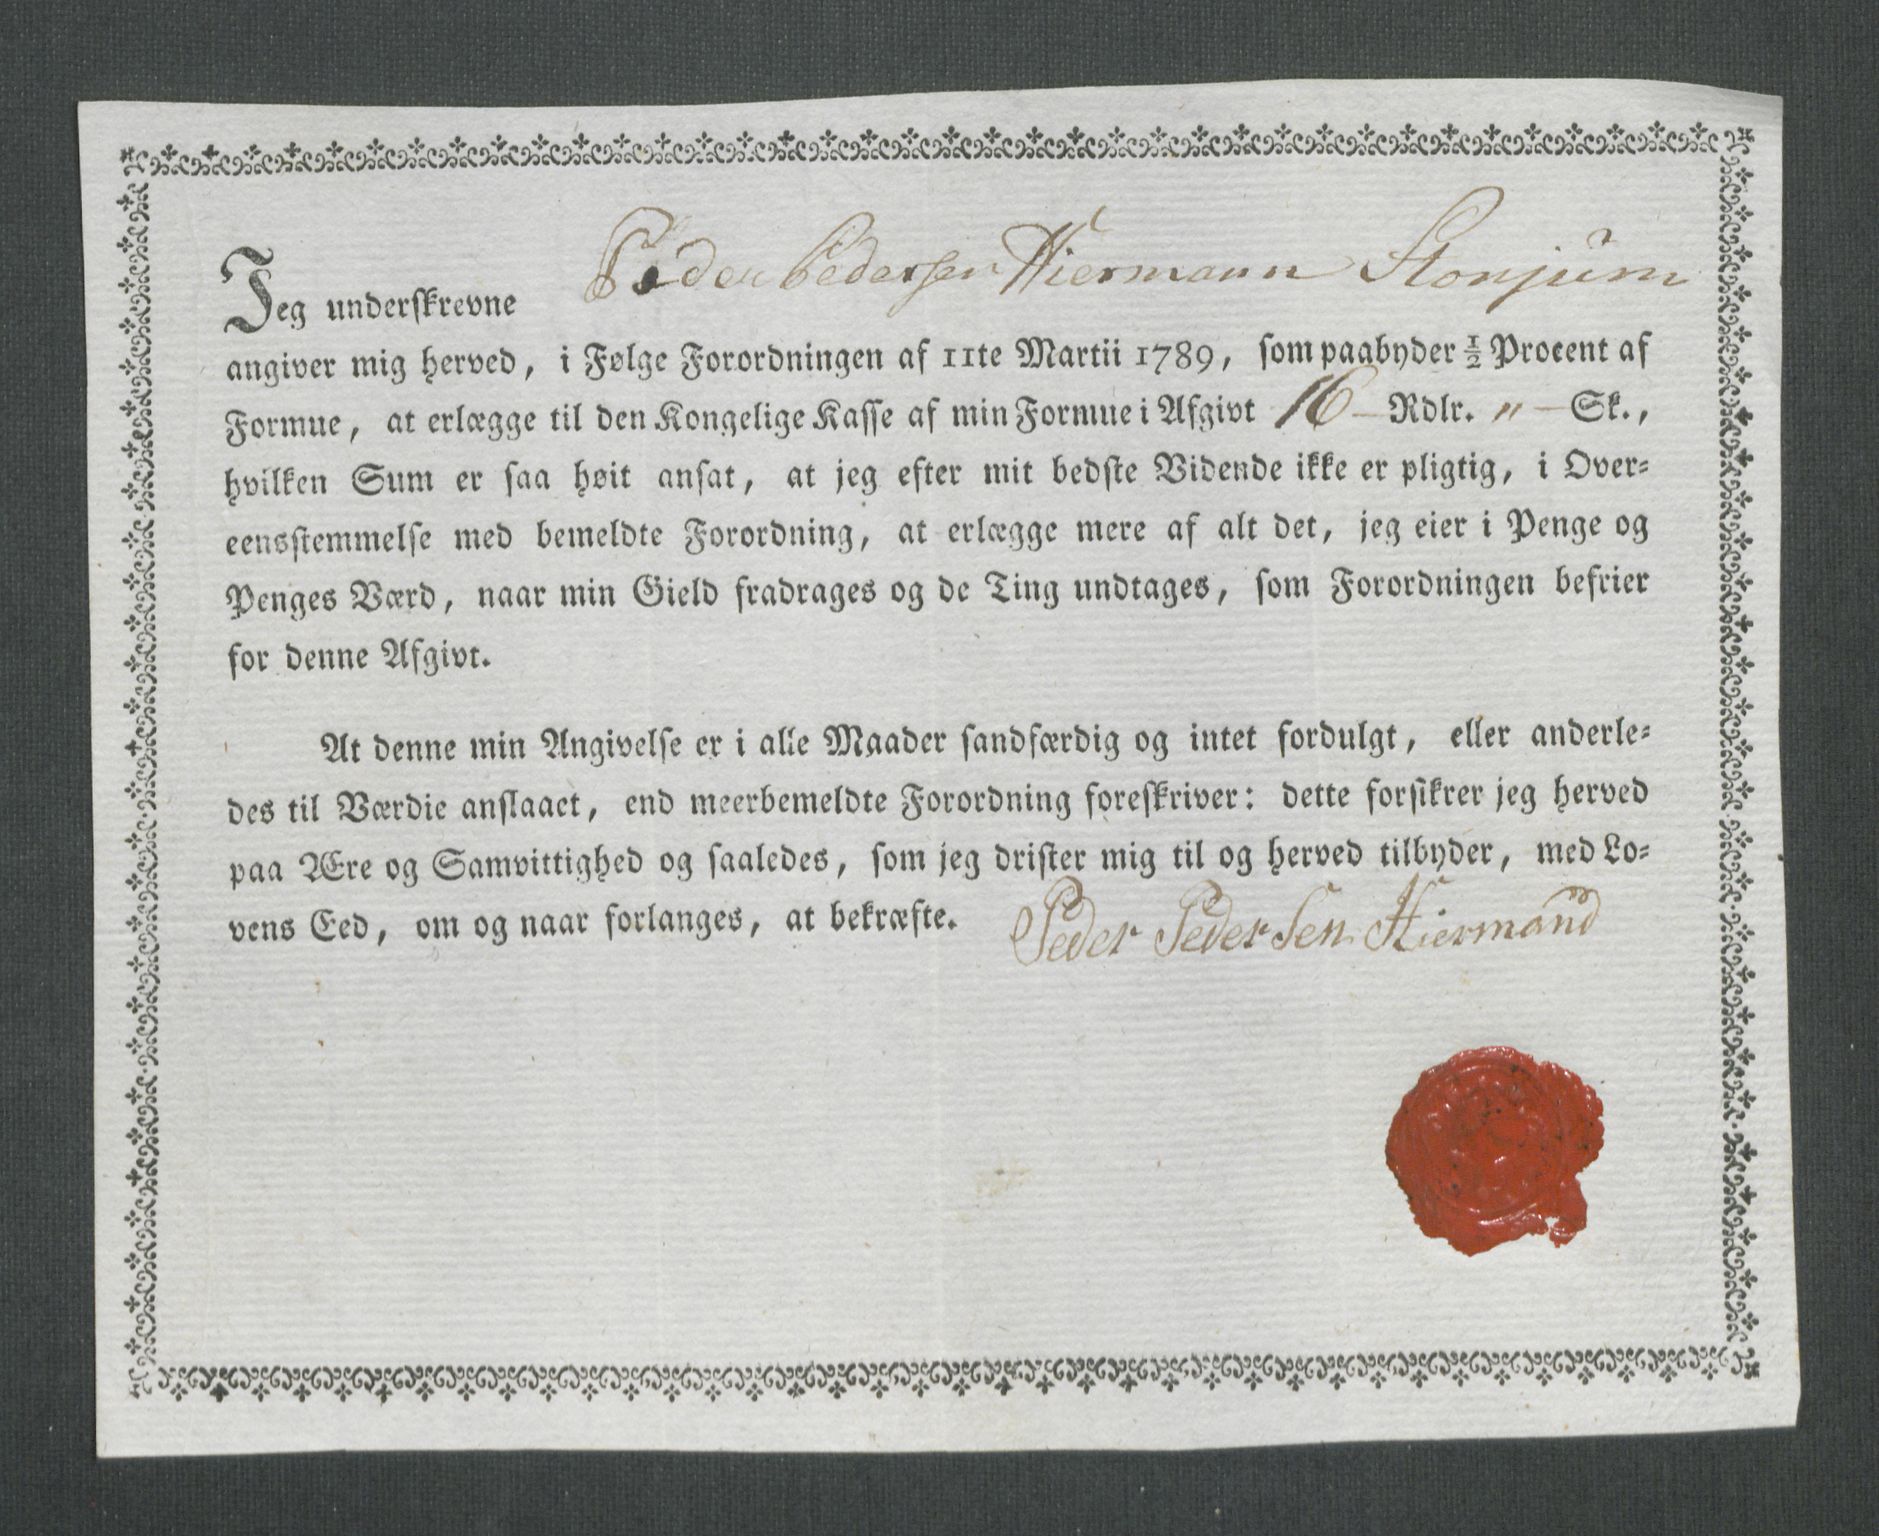 Jeg underskrevne Peder Pedersen Hiermann Stonjum
angiver mig herved, i Følge Forordningen af 11te Martii 1789, som paabyder ½ Procent af
Formue, at erlægge til den Kongelige Kasse af min Formue i Afgivt 16 – Rdlr. „ – Sk.,
hvilken Sum er saa høit ansat, at jeg efter mit bedste Vidende ikke er pligtig, i Over-
eensstemmelse med bemeldte Forordning, at erlægge mere af alt det, jeg eier i Penge og
Penges Værd, naar min Gield fradrages og de Ting undtages, som Forordningen befrier
for denne Afgivt.
At denne min Angivelse er i alle Maader sandfærdig og intet fordulgt, eller anderle-
des til Værdie anslaaet, end meerbemeldte Forordning foreskriver: dette forsikrer jeg herved
paa Ære og Samvittighed og saaledes, som jeg drister mig til og herved tilbyder, med Lo-
vens Eed, om og naar forlanges, at bekræfte. Peder Pedersen Hiermand